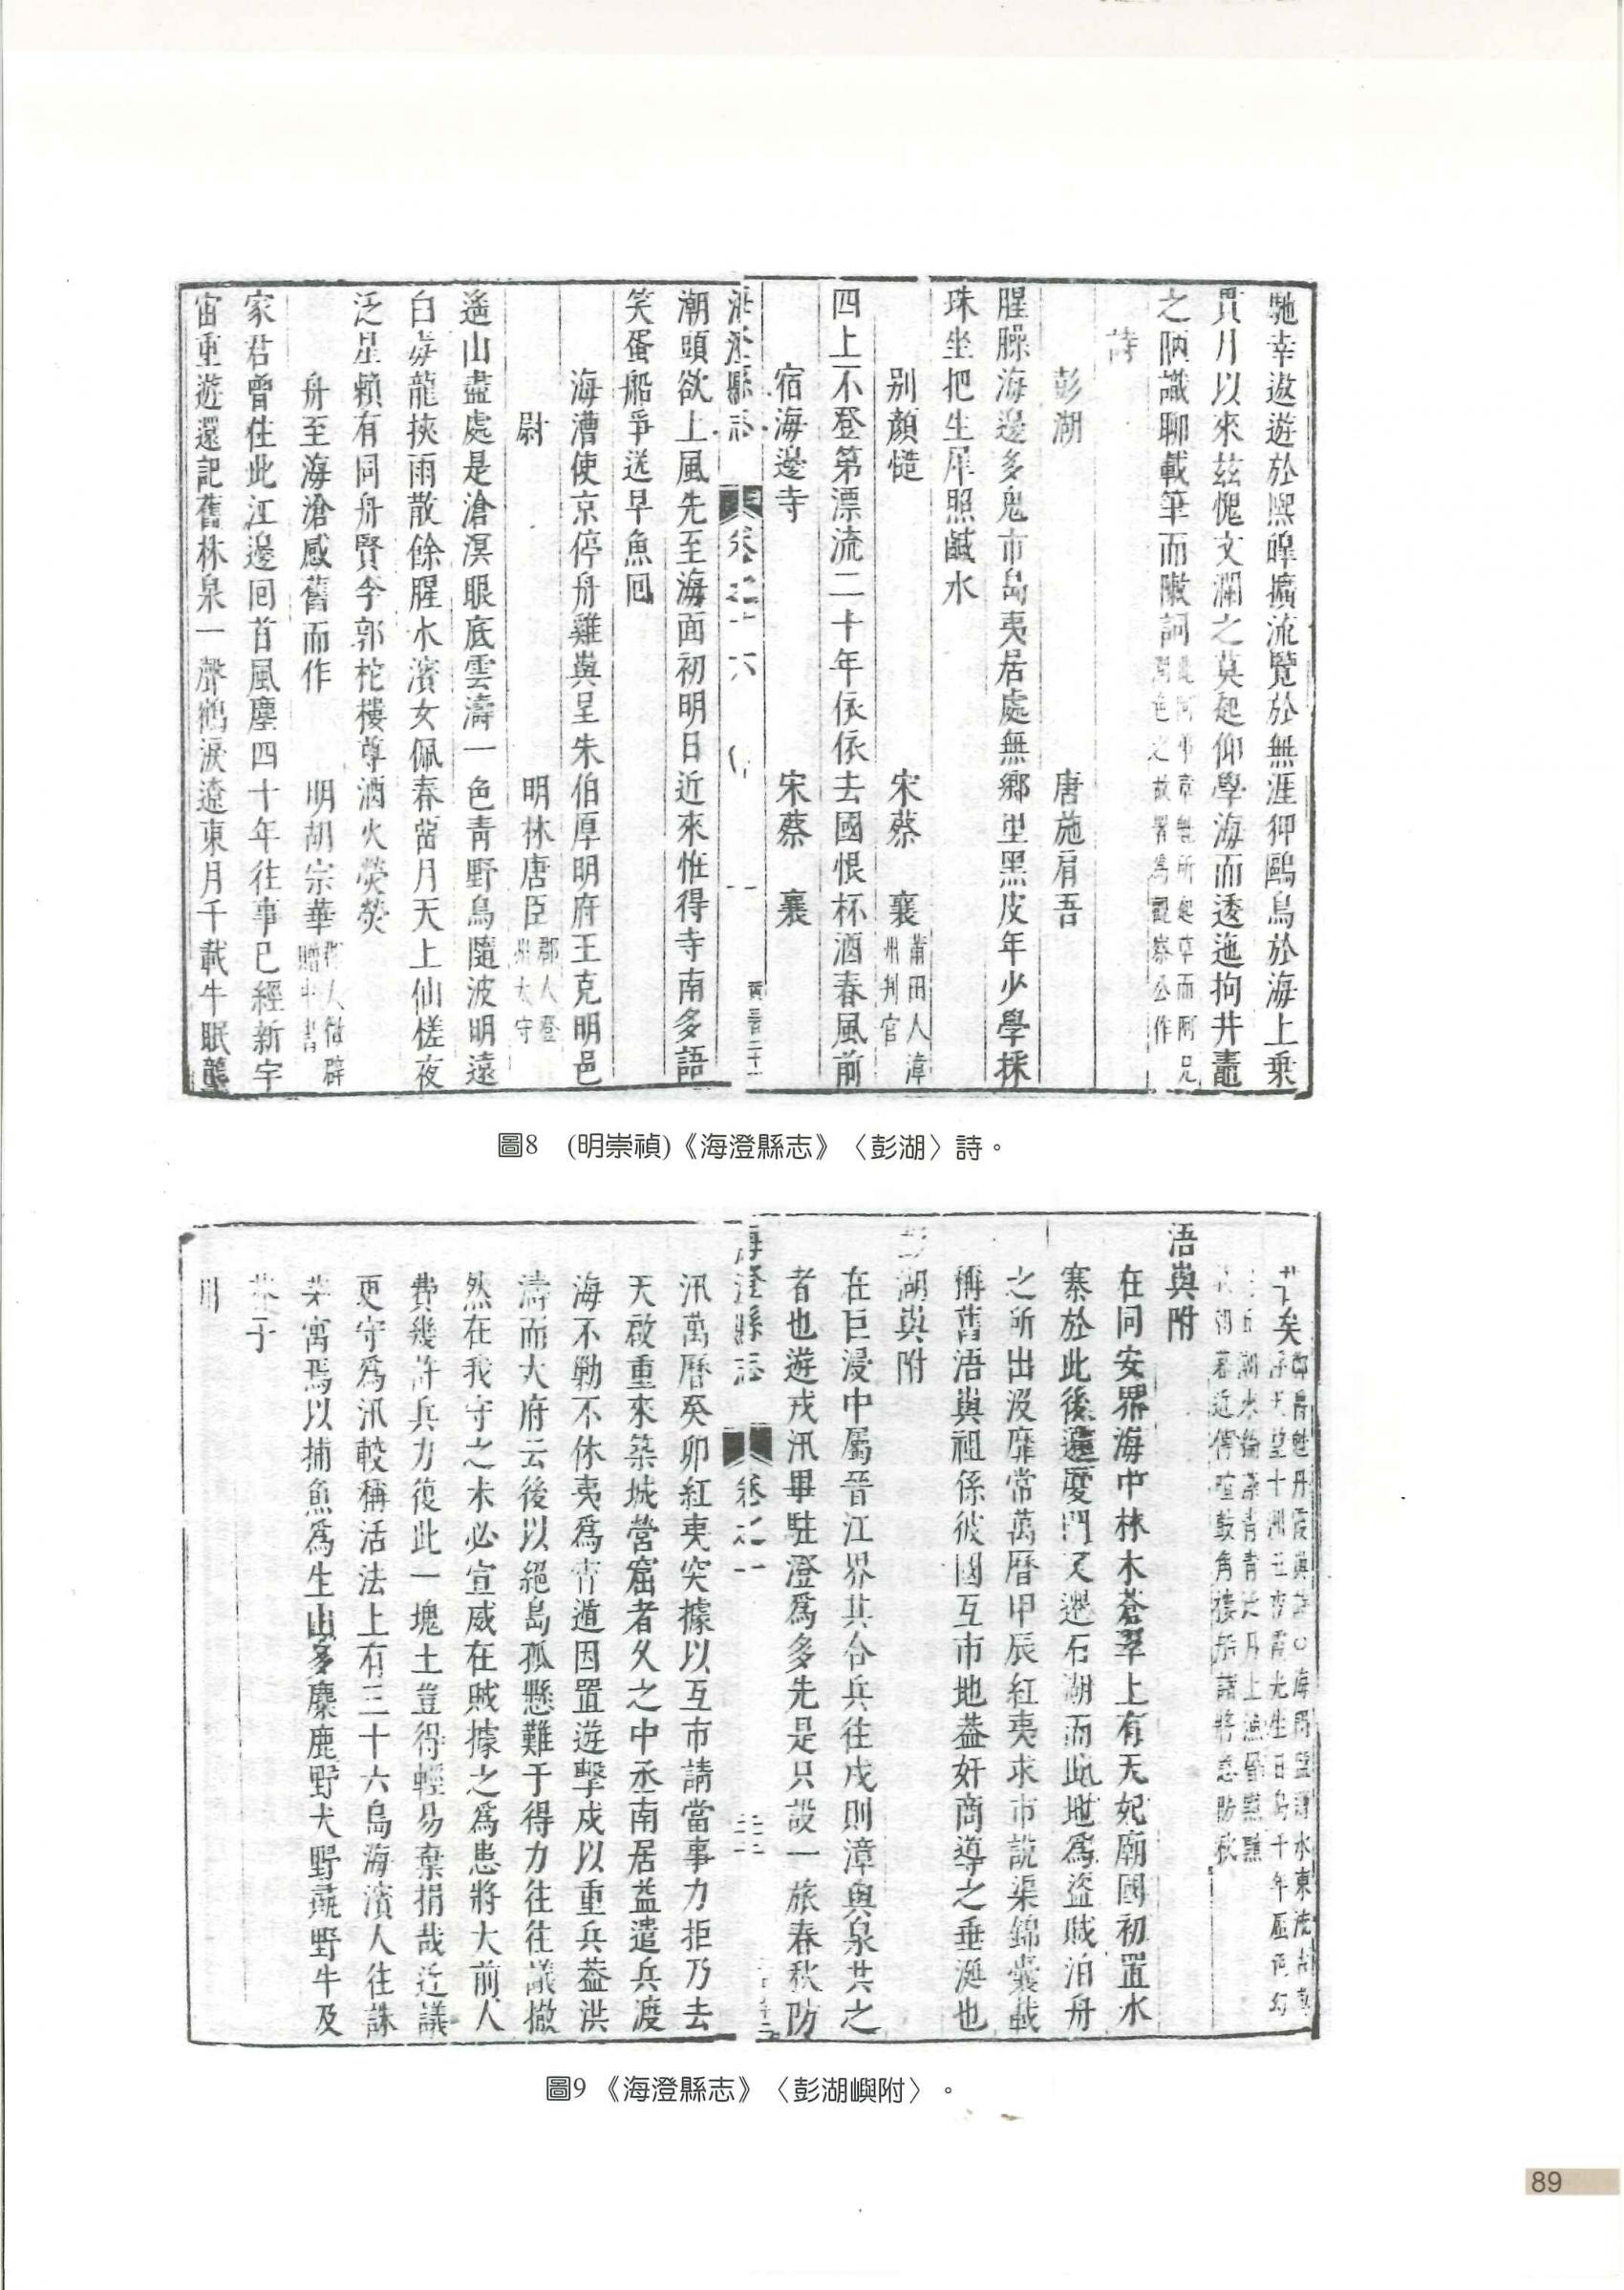 馳幸遨遊於熈皥擴流覽於無涯狎鷗鳥於海上乗
貫月以來玆愧文瀾之莫起仰學海而透迤拘井鼃
之陋識聊載筆而陳詞
詩
彭湖 唐施肩吾
腥臊海邊多鬼市島夷居處無鄉里黑皮年少學採
珠坐把生犀照鹹水
别顏慥 宋蔡襄 莆田人漳州判官
四上不登第漂流二十年依依去國恨杯酒春風前
宿海邊寺 宋蔡襄
海澄縣志 卷之十六
潮頭欲上風先至海面初明日近來惟得寺南多語
笑蛋船爭送早魚囘
海漕使京停舟雞與呈朱伯厚明府王克明邑
尉 明林唐臣 郡人登州太守
遙山盡處是滄溟眼底雲濤一色青野鳥隨波明遠
白毒龍挾雨散餘腥水濱女佩春當月天上仙槎夜
泛星賴有同舟賢李郭柁樓尊酒火熒熒
舟至海滄感舊而作 明胡宗華
家君曾住此江邊回首風塵四十年往事已經新宇
宙重遊還記舊林泉一聲鶴淚遼東月千載牛眠隴
圖8 (明崇禎)《海澄縣志》〈彭湖〉詩。
浯與附
在同安界海中林木蒼翠上有天妃廟國初置水
寨於此後遷廈門又遷石湖而此地為盜賊泊舟
之所出沒靡常萬曆甲辰紅夷求市説渠錦囊載
稱舊浯與祖係彼國互市地葢奸商導之垂涎也
湖與附
在巨浸中屬晉江界其合兵往戍則漳與泉共之
者也遊戎汛畢駐澄為多先是只設一旅春秋防
海澄縣志 卷之一
汛萬曆癸卯紅夷突據以互市請當事力拒乃去
天啟重來築城營窟者久之中丞南居益遣兵渡
海不勦不休夷為宵遁因置遊擊戍以重兵葢洪
濤而大府云後以絕島孤懸難于得力往往議撤
然在我守之未必宣威在賊據之為患將大前人
費幾許兵力復此一塊土豈得輕易棄捐哉近議
更守為汛較稱活法上有三十六島海濱人往誅
茅寓焉以捕魚為生山多麋鹿野犬野蔬野牛及
圖9 《海澄縣志》〈彭湖嶼附〉。
89